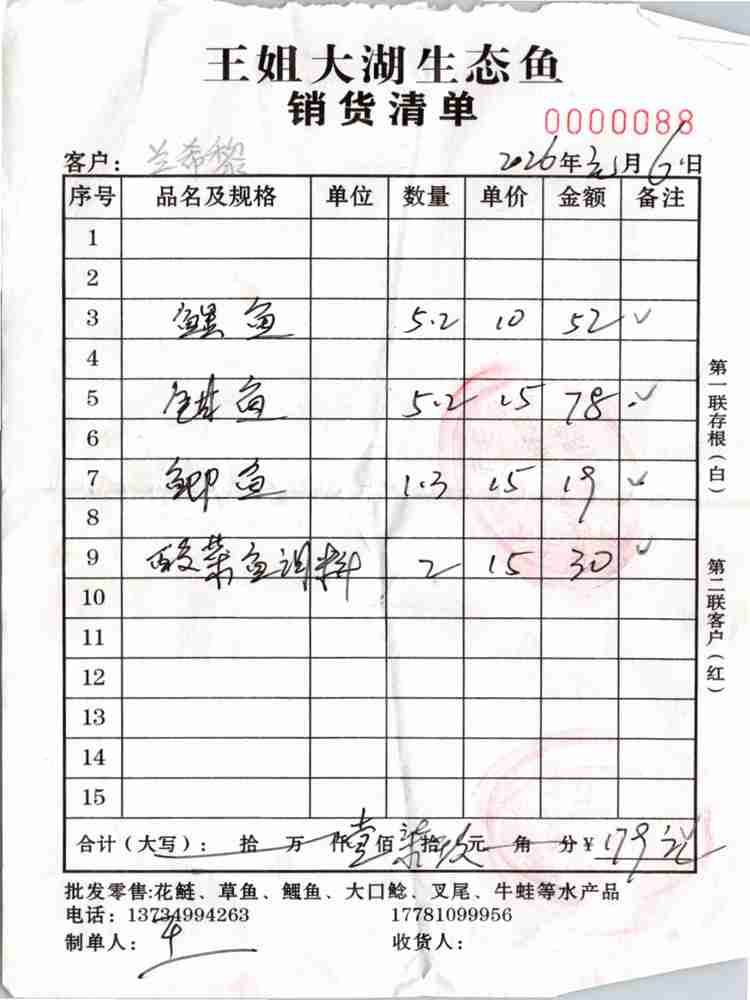 王姐大湖生态鱼
销货清单
0000088
客户：兰希黎 2026年元月6日
序号 品名及规格 单位 数量 单价 金额 备注
1
2
3 鲤鱼 5.2 10 52 ✓
4
5 鱼 5.2 15 78 ✓
6
7 鲫鱼 1.3 15 19 ✓
8
9 酸菜鱼调料 2 15 30 ✓
10
11
12
13
14
15
合计（大写）： 拾 万 仟壹佰柒拾玖元 角 分￥179元
批发零售:花鲢、草鱼、鲤鱼、大口鲶、叉尾、牛蛙等水产品
电话：13734994263 17781099956
制单人： 收货人：
第一联存根（白）
第二联客户（红）